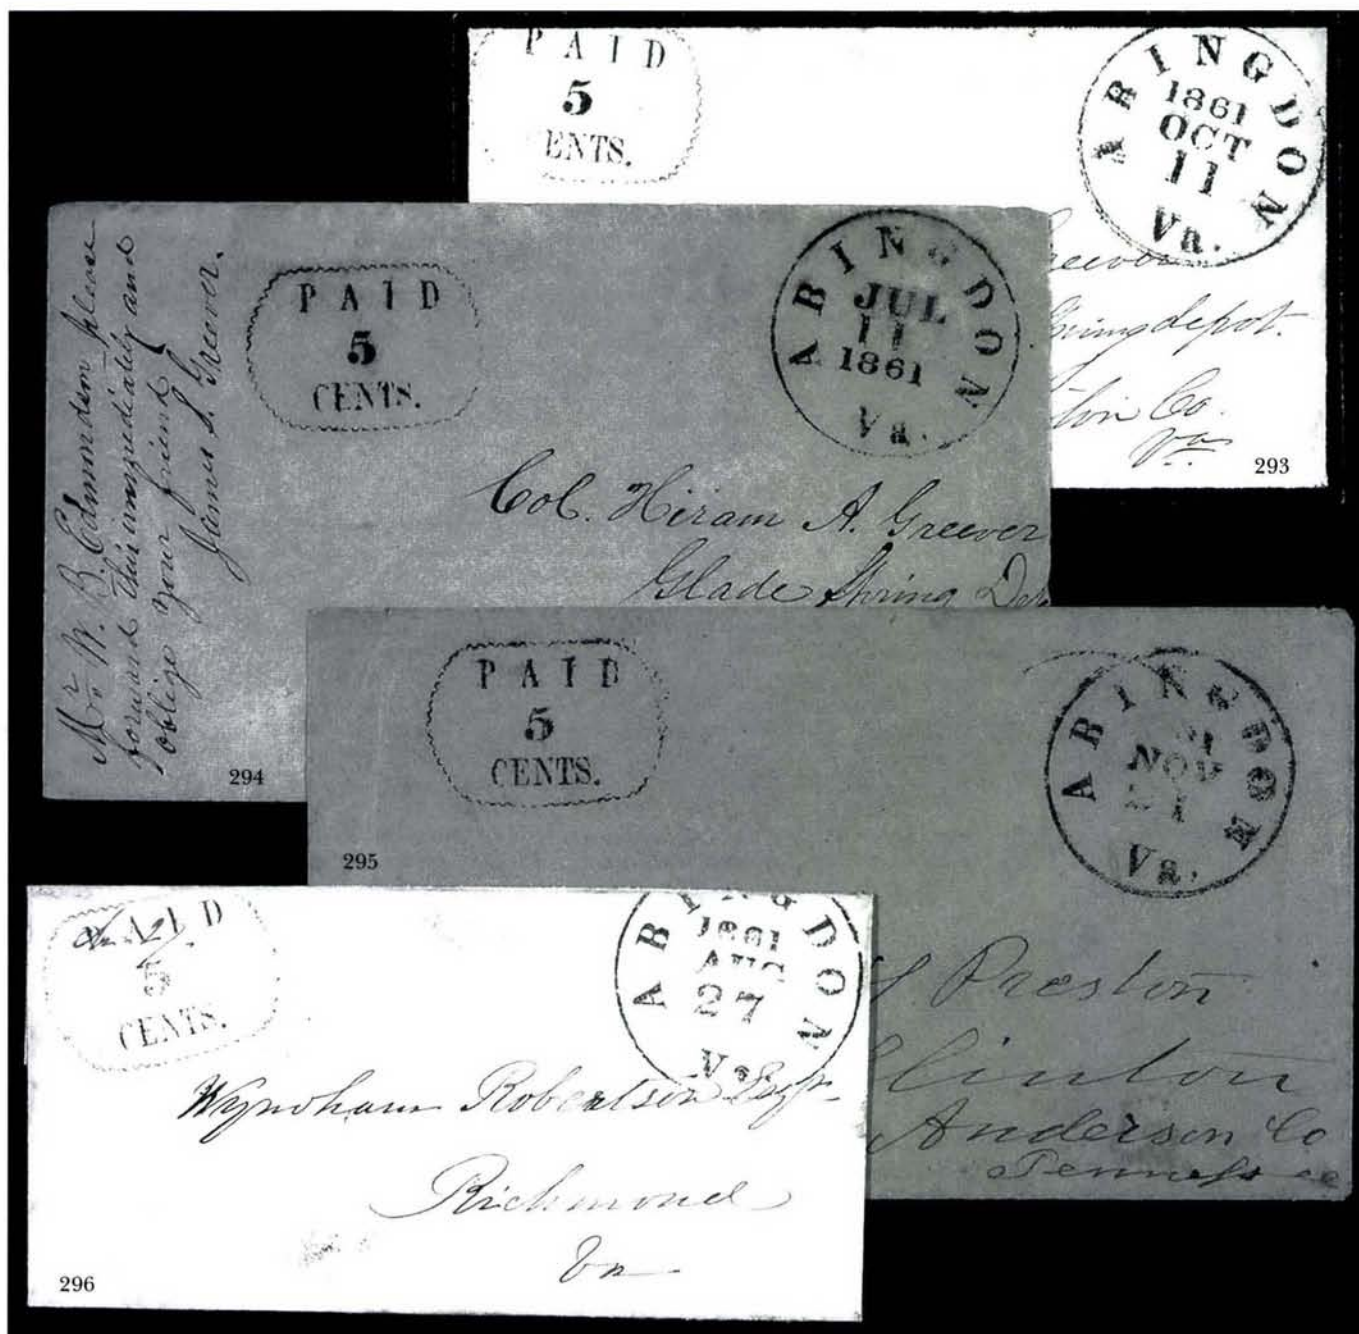 PAID
5
CENTS.
ABINGDON
1861
OCT
11
Va.
Greever
Spring depot.
Co.
Va
293
Mr. W. B. Edmondson please
forward this immediately and
oblige your friend
James S. Greever.
PAID
5
CENTS.
ABINGDON
JUL
11
1861
Va.
Col. Hiram A. Greever
Glade Spring Dep
294
PAID
5
CENTS.
ABINGDON
NOV
21
Va.
295
S. Preston
Clinton
Anderson Co
Tennessee
PAID
5
CENTS.
ABINGDON
1861
AUG
27
Va.
Wyndham Robertson Esqr
Richmond
Va
296